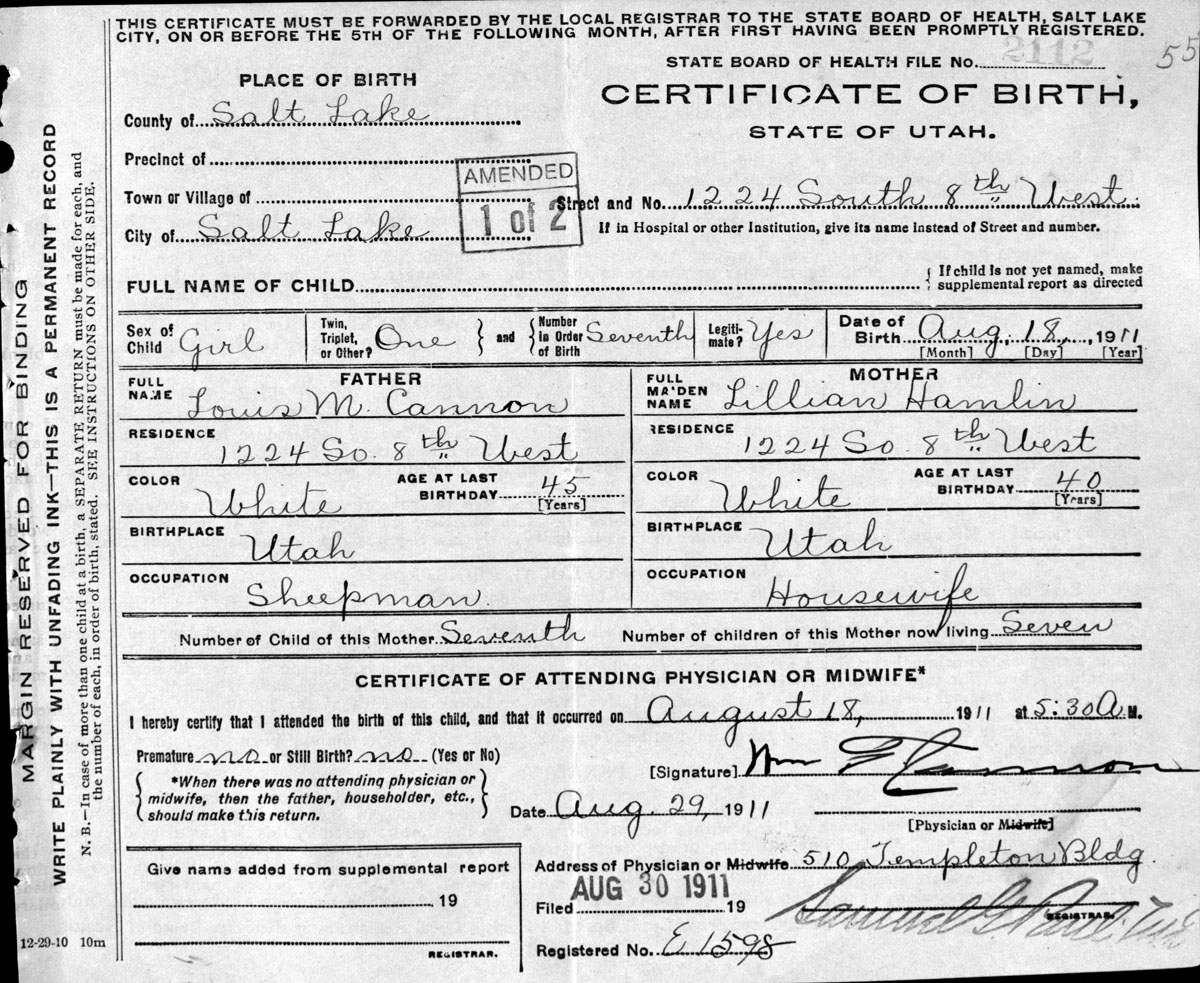 THIS CERTIFICATE MUST BE FORWARDED BY THE LOCAL REGISTRAR TO THE STATE BOARD OF HEALTH, SALT LAKE
CITY, ON OR BEFORE THE 5TH OF THE FOLLOWING MONTH, AFTER FIRST HAVING BEEN PROMPTLY REGISTERED.
STATE BOARD OF HEALTH FILE No. 2112
55
PLACE OF BIRTH
CERTIFICATE OF BIRTH,
STATE OF UTAH.
County of Salt Lake
Precinct of
AMENDED
1 of 2
Town or Village of
Street and No. 1224 South 8th West.
City of Salt Lake
If in Hospital or other Institution, give its name instead of Street and number.
FULL NAME OF CHILD
{ If child is not yet named, make
supplemental report as directed
Sex of Child Girl
Twin, Triplet, or Other? One } and { Number in Order of Birth Seventh
Legiti-mate? Yes
Date of Birth Aug. 18, 1911
[Month] [Day] [Year]
FATHER
FULL NAME Louis M. Cannon
RESIDENCE 1224 So. 8th West
COLOR White
AGE AT LAST BIRTHDAY 45
[Years]
BIRTHPLACE Utah
OCCUPATION Sheepman.
MOTHER
FULL MAIDEN NAME Lillian Hamlin
RESIDENCE 1224 So. 8th West
COLOR White
AGE AT LAST BIRTHDAY 40
[Years]
BIRTHPLACE Utah
OCCUPATION Housewife
Number of Child of this Mother Seventh Number of children of this Mother now living Seven
CERTIFICATE OF ATTENDING PHYSICIAN OR MIDWIFE*
I hereby certify that I attended the birth of this child, and that it occurred on August 18, 1911 at 5:30 A M.
Premature no or Still Birth? no (Yes or No)
{ *When there was no attending physician or
midwife, then the father, householder, etc.,
should make this return. }
[Signature] Wm F Cannon
Date Aug. 29, 1911
[Physician or Midwife]
Address of Physician or Midwife 510 Templeton Bldg.
Give name added from supplemental report
19
REGISTRAR.
AUG 30 1911
Filed 19
REGISTRAR.
Registered No. E 1598
12-29-10 10m
MARGIN RESERVED FOR BINDING
WRITE PLAINLY WITH UNFADING INK—THIS IS A PERMANENT RECORD
N. B.—In case of more than one child at a birth, a SEPARATE RETURN must be made for each, and
the number of each, in order of birth, stated. SEE INSTRUCTIONS ON OTHER SIDE.